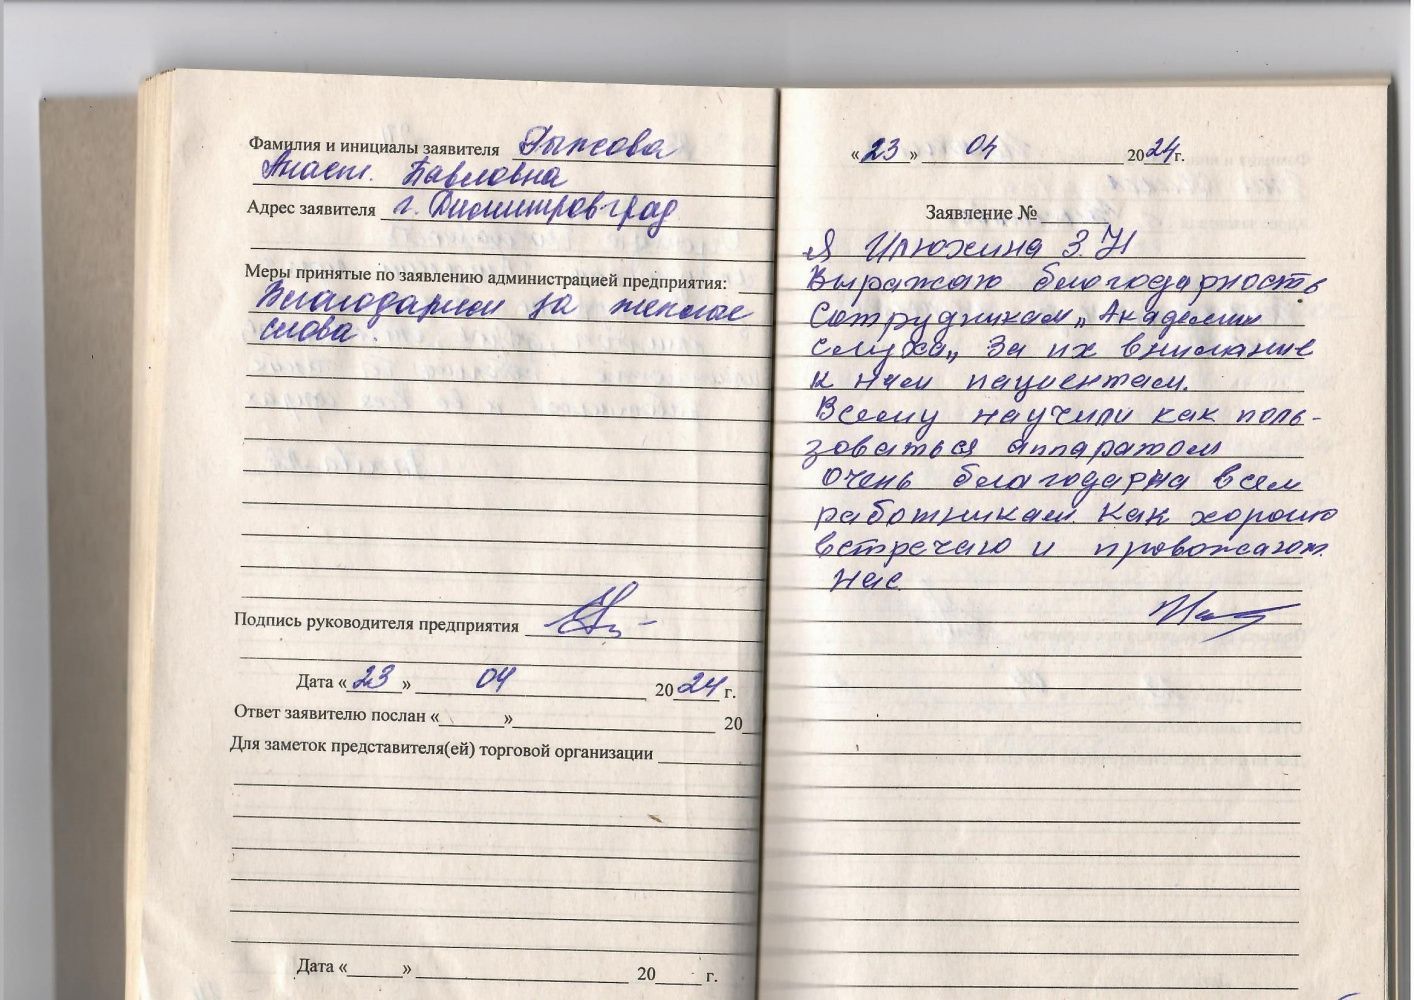 Фамилия и инициалы заявителя
Анаст. Павловна
Адрес заявителя г. Димитровград
Меры принятые по заявлению администрацией предприятия:
Благодарим за теплые
слова.
Подпись руководителя предприятия
Дата «23» 04 2024 г.
Ответ заявителю послан «      » 20
Для заметок представителя(ей) торговой организации
Дата «      » 20      г.
«23» 04 2024г.
Заявление №
Я Илюхина З.Н
Выражаю благодарность
Сотрудникам „Академии
слуха„ За их внимание
к нам пациентам.
Всему научили как поль-
зоваться аппаратом
Очень благодарна всем
работникам. Как хорошо
встречаю и провожают.
Нас